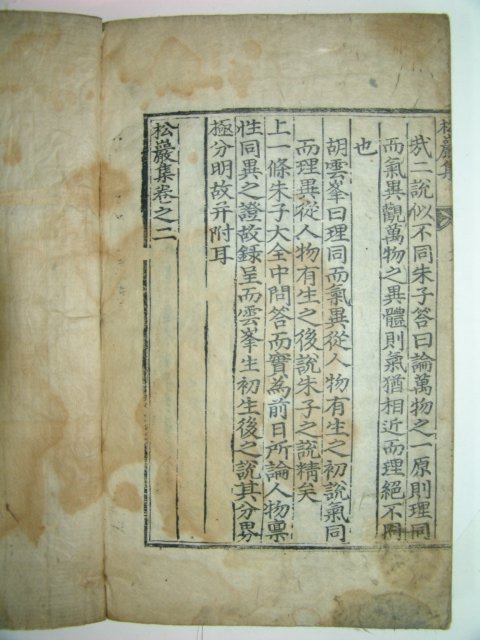 松巖集
哉二說似不同朱子答曰論萬物之一原則理同
而氣異觀萬物之異體則氣猶相近而理絶不同
也
胡雲峯曰理同而氣異從人物有生之初說氣同
而理異從人物有生之後說朱子之說精矣
上一條朱子大全中問答而實爲前日所論人物稟
性同異之證故錄呈而雲峯生初生後之說其分界
極分明故幷附耳
松巖集卷之二